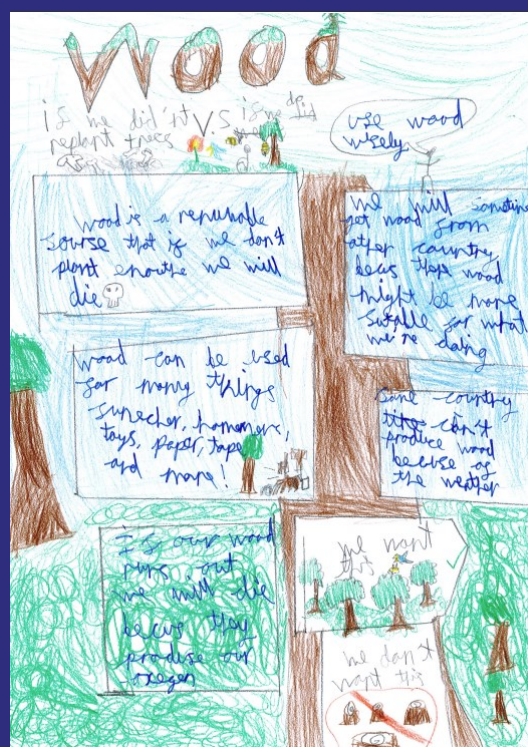 Wood
if we didn't V.S if we did
replant trees
use wood
wisely
wood is a renuwable
sourse that if we don't
plant enouthe we will
die
we will sometime
get wood from
other country
becus ther wood
might be more
sutable for what
we're doing
wood can be used
for many things
toys, paper, tape
and more!
some country
can't
produce wood
becuse of
the weather
If our wood
runs out
we will die
becus they
produse our
oxegen
we want
this
we don't
want this